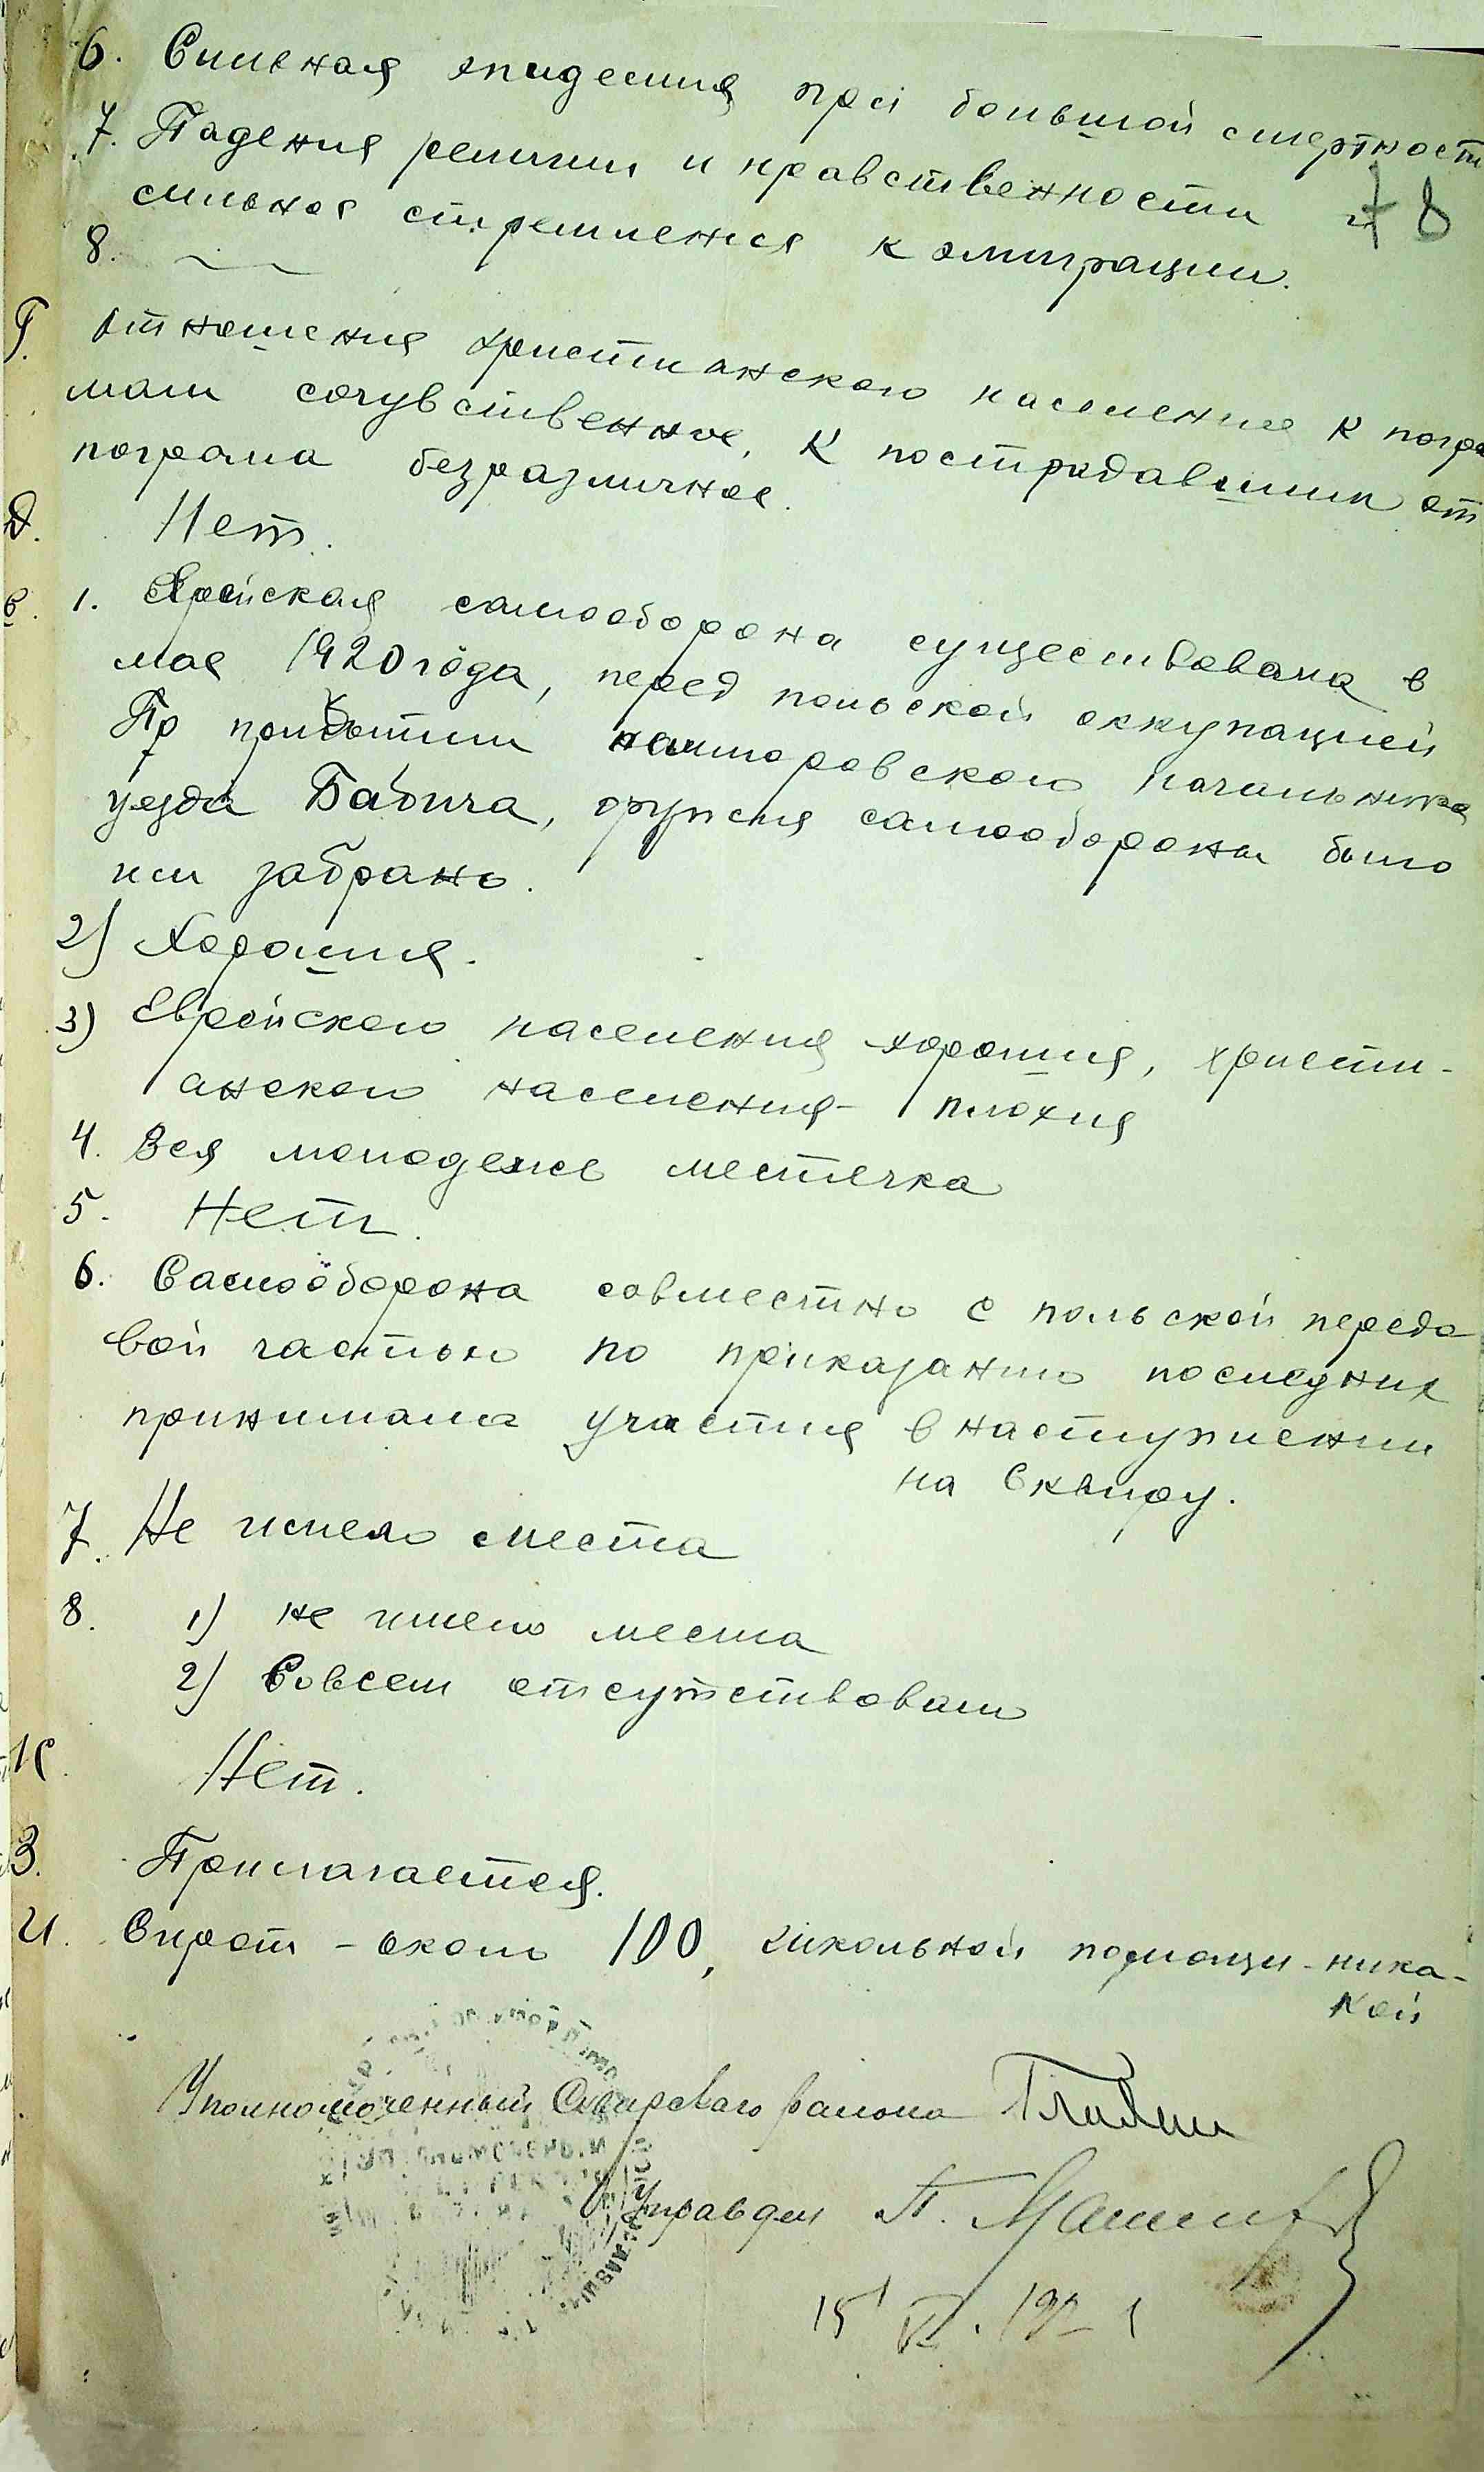 6. Сильная эпидемия при большой смертност
7. Падения религии и нравственности и
78
сильная стремления к эмиграции.
8. — —
Г. Отношения христианского населения к погро
мам сочувственное, к пострадавшим от
погрома безразличное.
Д. Нет.
Е. 1. Еврейская самооборона существовала в
мае 1920 года, перед польской оккупацией
Пр прибытии начальника
уезда Бабича, оружия самообороны было
им забрано.
2) Хорошия.
3) Еврейского населения хорошия, христи-
анского населения - плохия
4. Вся молодежь местечка
5. Нет.
6. Самооборона совместно с польской передо
вой частью по приказанию последних
принимала участия в наступлении
на Сквиру.
7. Не имело места
8. 1) не имело места
2) Совсем отсутствовали
Нет.
З. Прилагается.
И. Сирот - около 100, школьной помощи - ника-
кой
Уполномоченный Сквирского района
Управдел П.
15 VI. 1921